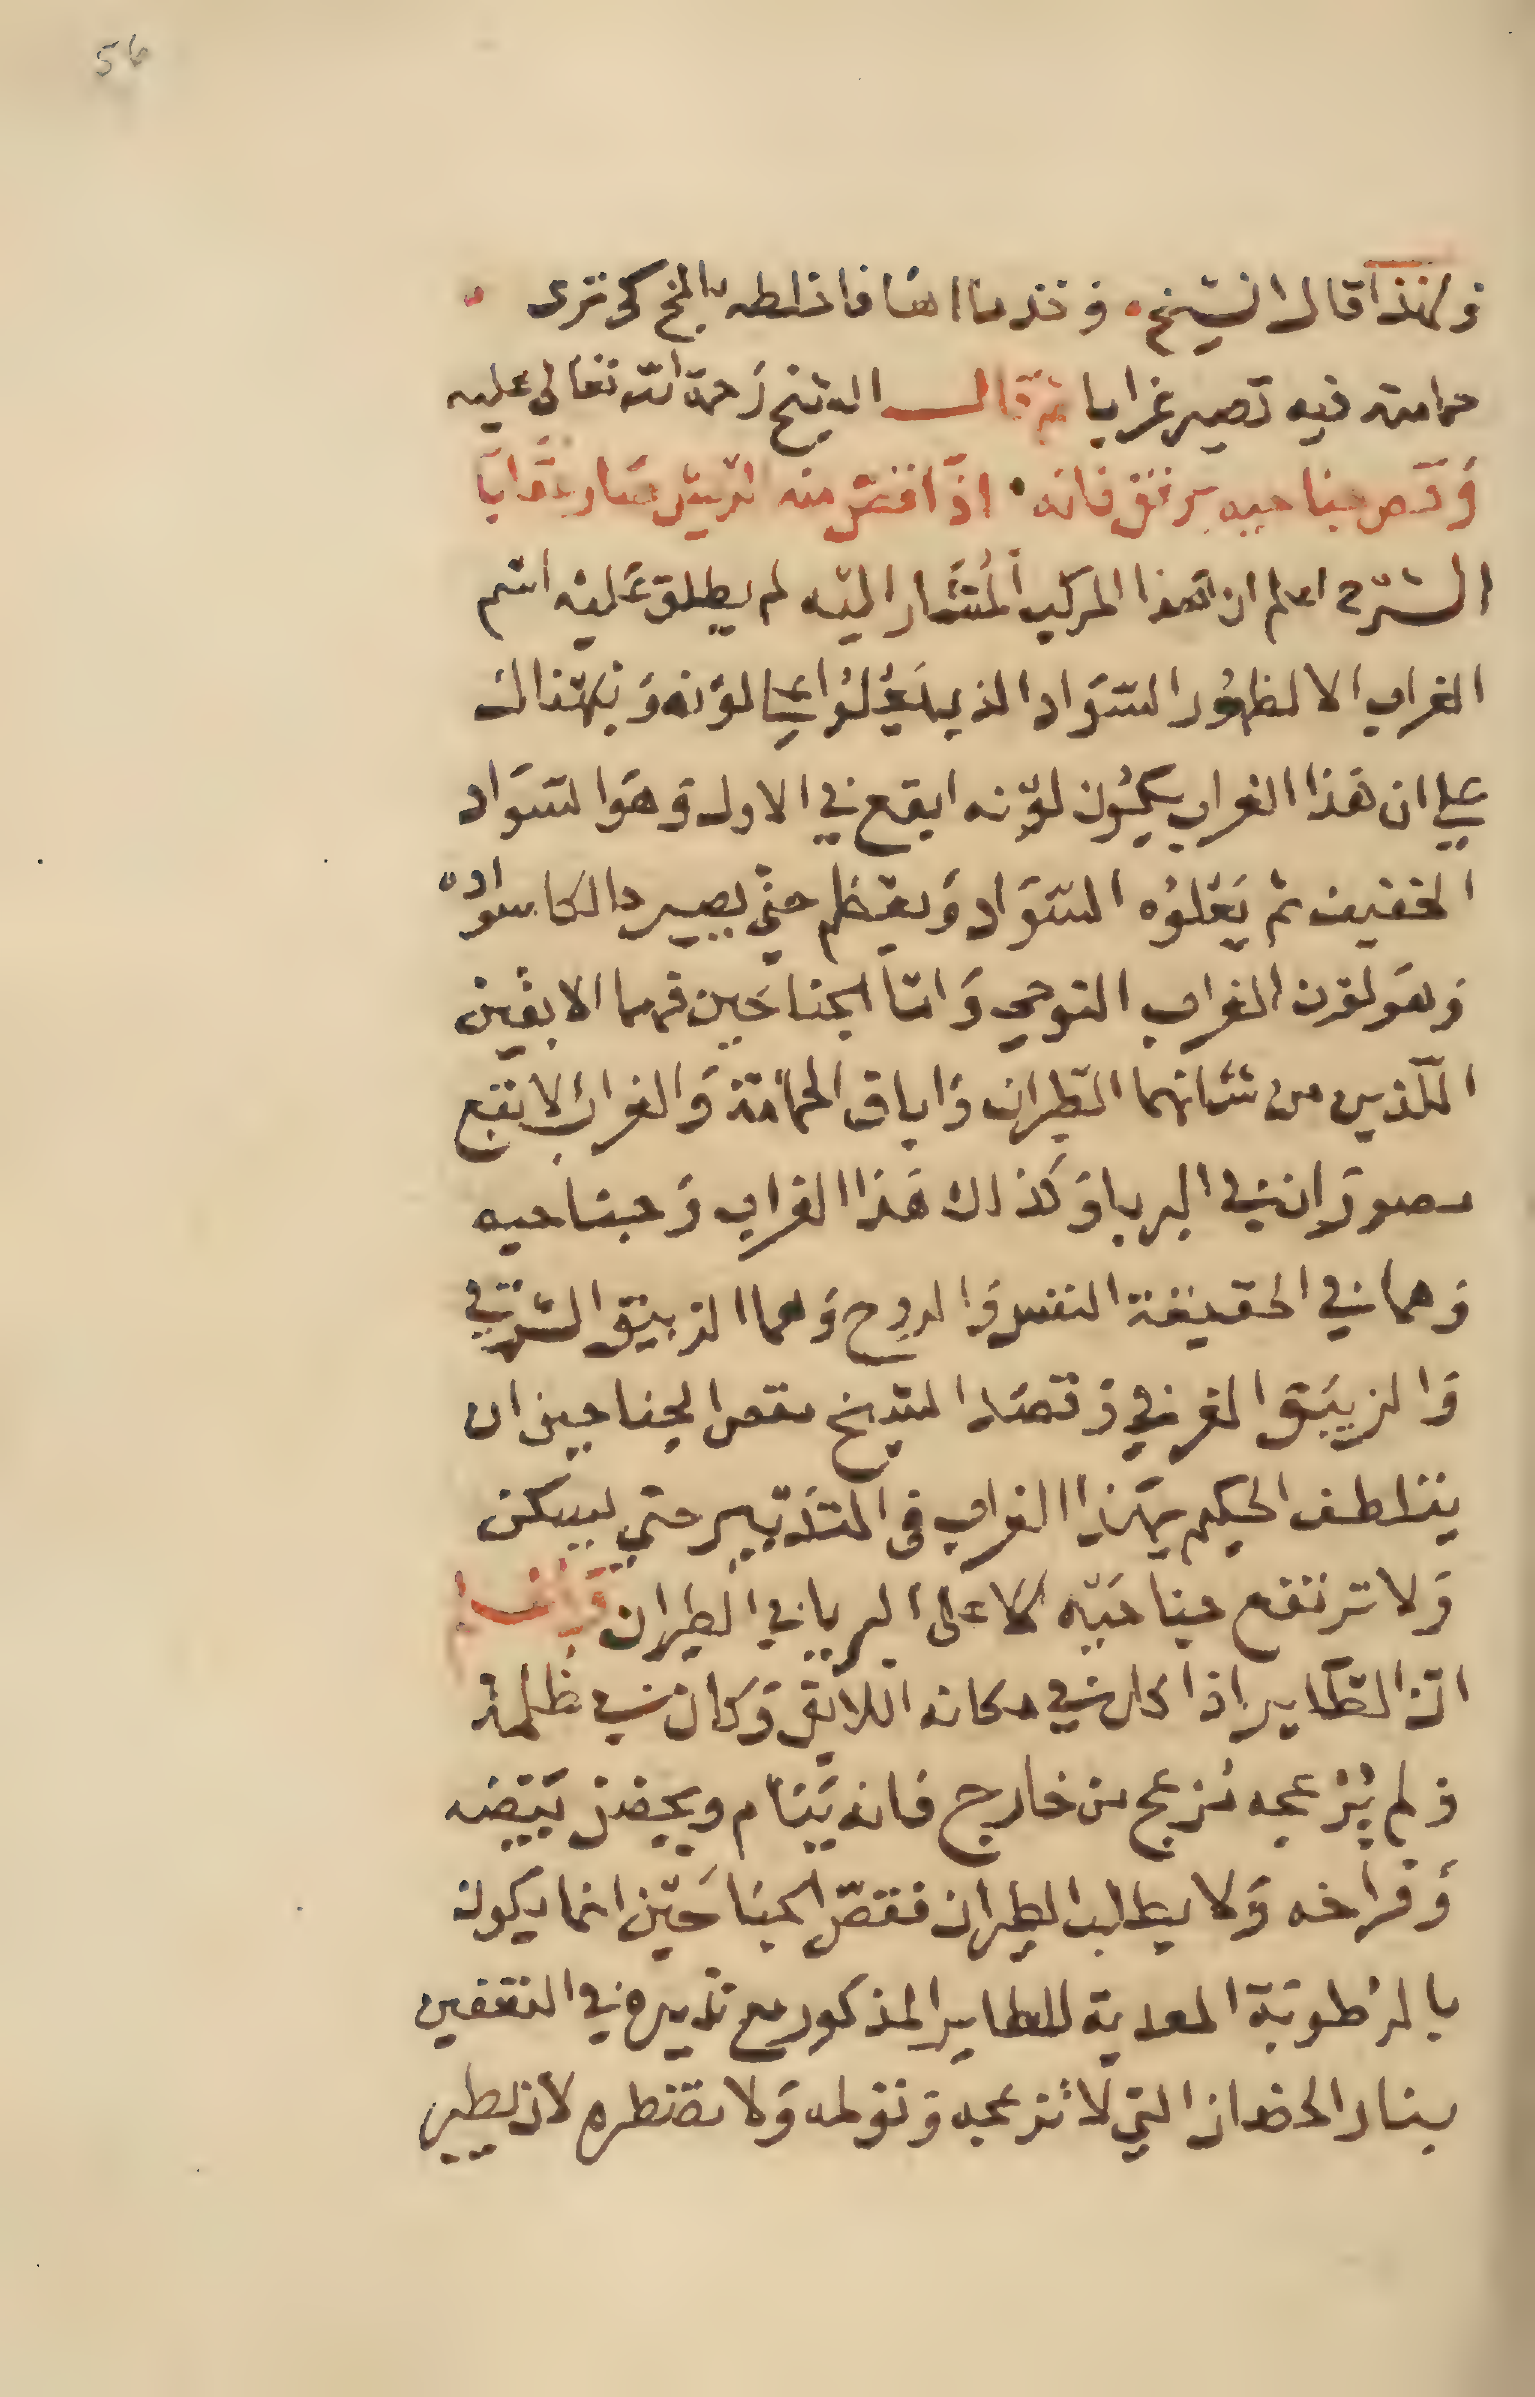 56
ولهذا قال الشيخ. وخذ ماءها فاخلطه بالمخ كى ترى
حمامته فيه تصير غرابا ثم قال الشيخ رحمة الله تعالى عليه
وقص جناحيه برفق فانه. اذا قص منه الريش صار غرابا
الشرح اعلم ان هذا المركب المشار اليه لم يطلق عليه اسم
الغراب الا لظهور السواد الذي يعلوا على لونه
على ان هذا الغراب يكون لونه ابقع في الاول وهو السواد
الخفيف ثم يعلوه السواد ويعظم حتى يصير حالكا سواده
وهو لون الغراب النوحي واما الجناحين فهما الابقين
اللذين من شانهما الطيران واباق الحمامة والغراب الابقع
مصوران في البربا وكذلك هذا الغراب وجناحيه
وهما في الحقيقة النفس والروح وهما الزيبق الشرقي
والزيبق الغربي وقصد الشيخ بقص الجناحين ان
يتلطف الحكيم بهذا الغراب في التدبير حتى يسكن
ولا ترتفع جناحيه كلا على البربا في الطيران واعلم
ان الطاير اذا كان في مكانه اللايق وكان في ظلمة
ولم يزعجه مزعج من خارج فانه ينام ويحضن بيضه
وفراخه ولا يطلب الطيران فقص الجناحين انما يكون
بالرطوبة المعدية للطاير المذكور مع تدبيره في التعفين
بنار الحضان التي لا تزعجه وتولمه ولا تضطره لان يطير